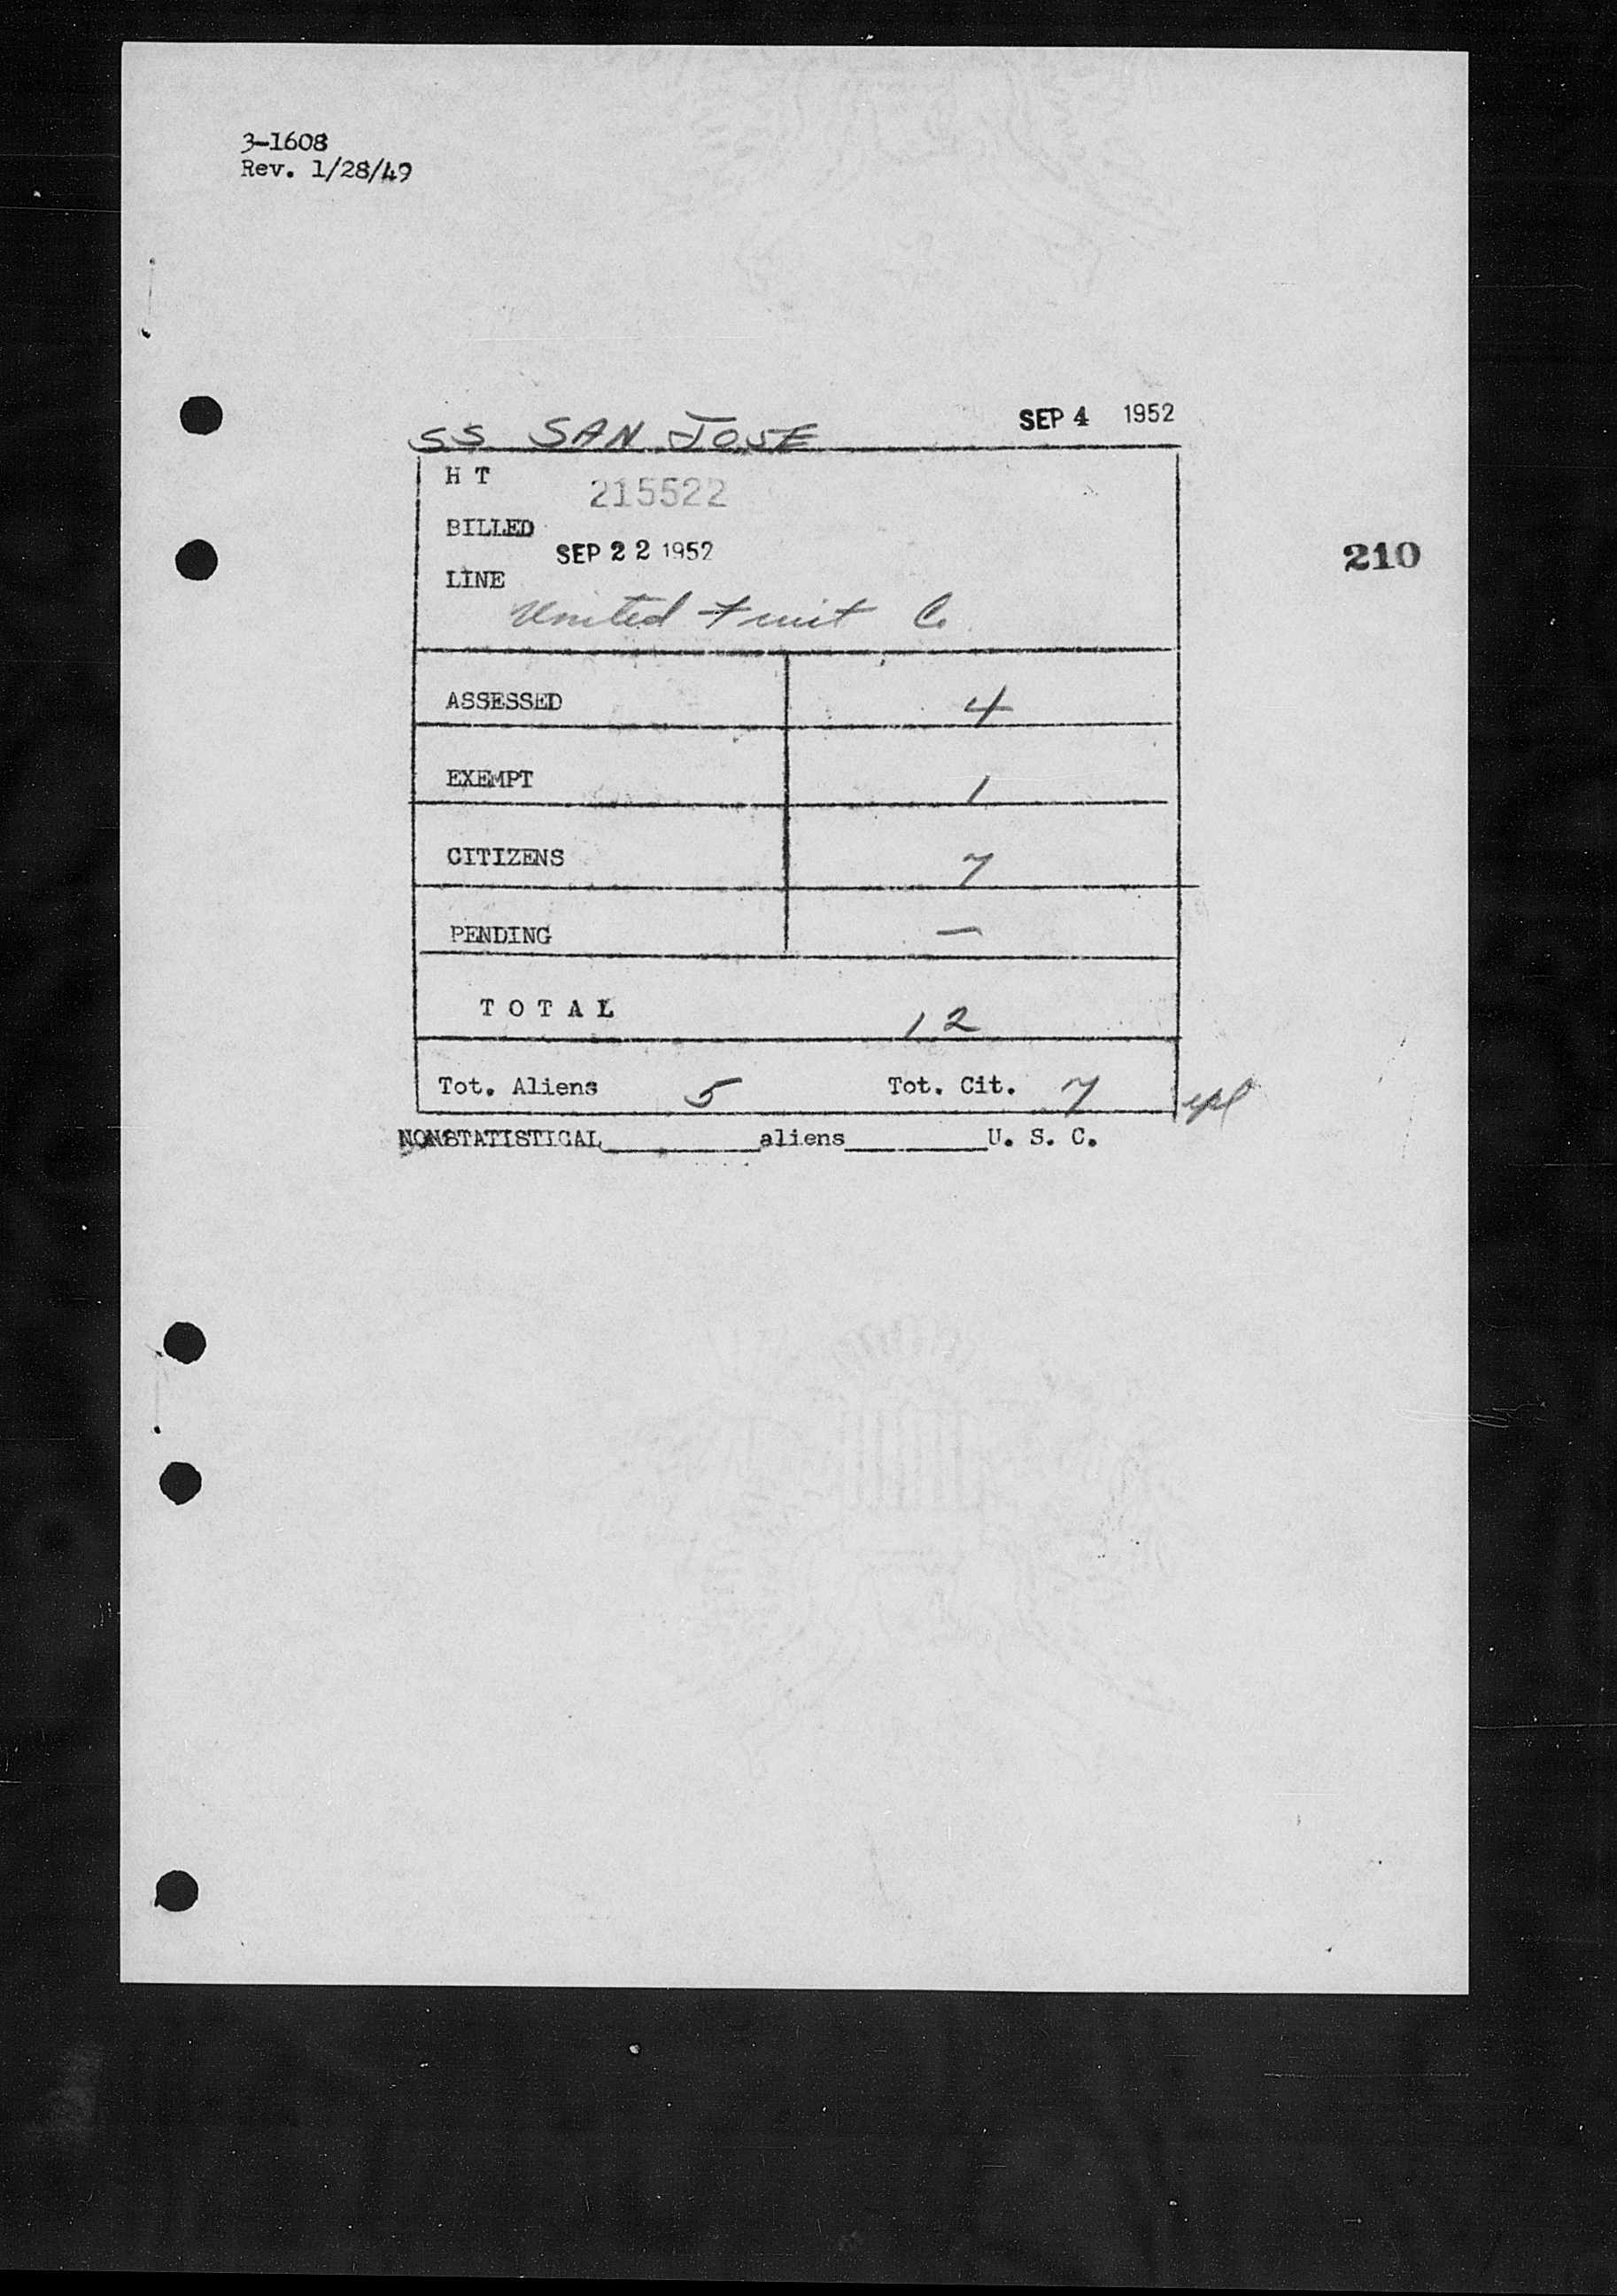 3-1608
Rev. 1/28/49
SS SAN JOSE SEP 4 1952
H T 215522
BILLED SEP 22 1952
210
LINE
United Fruit Co
ASSESSED 4
EXEMPT 1
CITIZENS 7
PENDING —
T O T A L 12
Tot. Aliens 5 Tot. Cit. 7
NONSTATISTICAL________aliens________U. S. C.